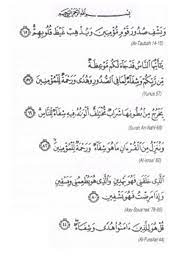 بِسْمِ ٱللَّهِ ٱلرَّحْمَٰنِ ٱلرَّحِيمِ
وَيَشْفِ صُدُورَ قَوْمٍ مُّؤْمِنِينَ وَيُذْهِبْ غَيْظَ قُلُوبِهِمْ
(At-Taubah 14-15)
يَٰٓأَيُّهَا ٱلنَّاسُ قَدْ جَآءَتْكُم مَّوْعِظَةٌ
مِّن رَّبِّكُمْ وَشِفَآءٌ لِّمَا فِى ٱلصُّدُورِ وَهُدًى وَرَحْمَةٌ لِّلْمُؤْمِنِينَ
(Yunus 57)
يَخْرُجُ مِنۢ بُطُونِهَا شَرَابٌ مُّخْتَلِفٌ أَلْوَٰنُهُۥ فِيهِ شِفَآءٌ لِّلنَّاسِ
(Surah An-Nahl-69)
وَنُنَزِّلُ مِنَ ٱلْقُرْءَانِ مَا هُوَ شِفَآءٌ وَرَحْمَةٌ لِّلْمُؤْمِنِينَ
(Al-Israa' 82)
ٱلَّذِى خَلَقَنِى فَهُوَ يَهْدِينِ وَٱلَّذِى هُوَ يُطْعِمُنِى وَيَسْقِينِ
وَإِذَا مَرِضْتُ فَهُوَ يَشْفِينِ ٨٠
78-80)
قُلْ هُوَ لِلَّذِينَ ءَامَنُوا۟ هُدًى وَشِفَآءٌ ٤٤
(Al-Fussilat 44)